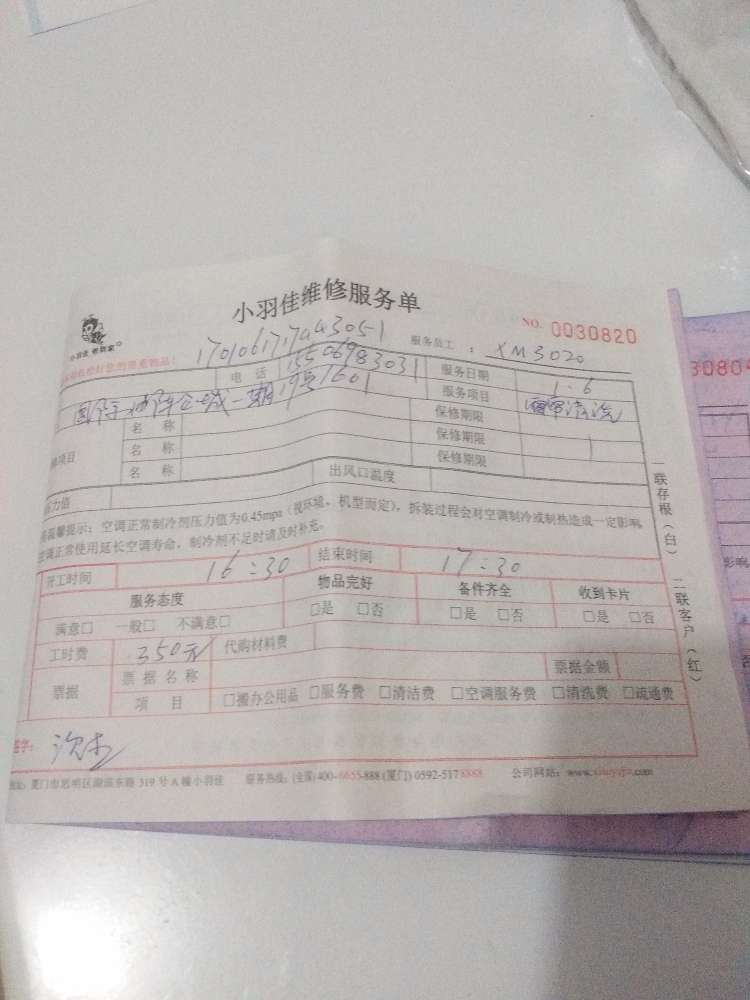 小羽佳维修服务单
NO. 0030820
小羽佳 修到家
17010617179443051 服务员工： XM3020
电 话 15506983031 服务日期 1.6
一期19号1601 服务项目 清洗
名 称 保修期限
修项目 名 称 保修期限
名 称 保修期限
压力值 出风口温度
温馨提示：空调正常制冷剂压力值为0.45mpa（视环境、机型而定），拆装过程会对空调制冷或制热造成一定影响
空调正常使用延长空调寿命，制冷剂不足时请及时补充。
开工时间 16:30 结束时间 17:30
服务态度 物品完好 备件齐全 收到卡片
满意□ 一般□ 不满意□ □是 □否 □是 □否 □是 □否
工时费 350元 代购材料费
票据 票据名称 票据金额
项 目 □搬办公用品 □服务费 □清洁费 □空调服务费 □清洗费 □疏通费
签字：
地址：厦门市思明区湖滨东路 319 号 A 幢小羽佳 服务热线：(全国)400-6655-888 (厦门) 0592-5178888 公司网站：www.xiaoyujia.com
一联存根（白） 二联客户（红）
30804
影响